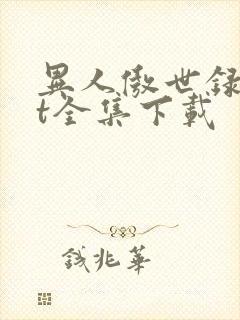 異人傲世録
t全集下載
錢兆華